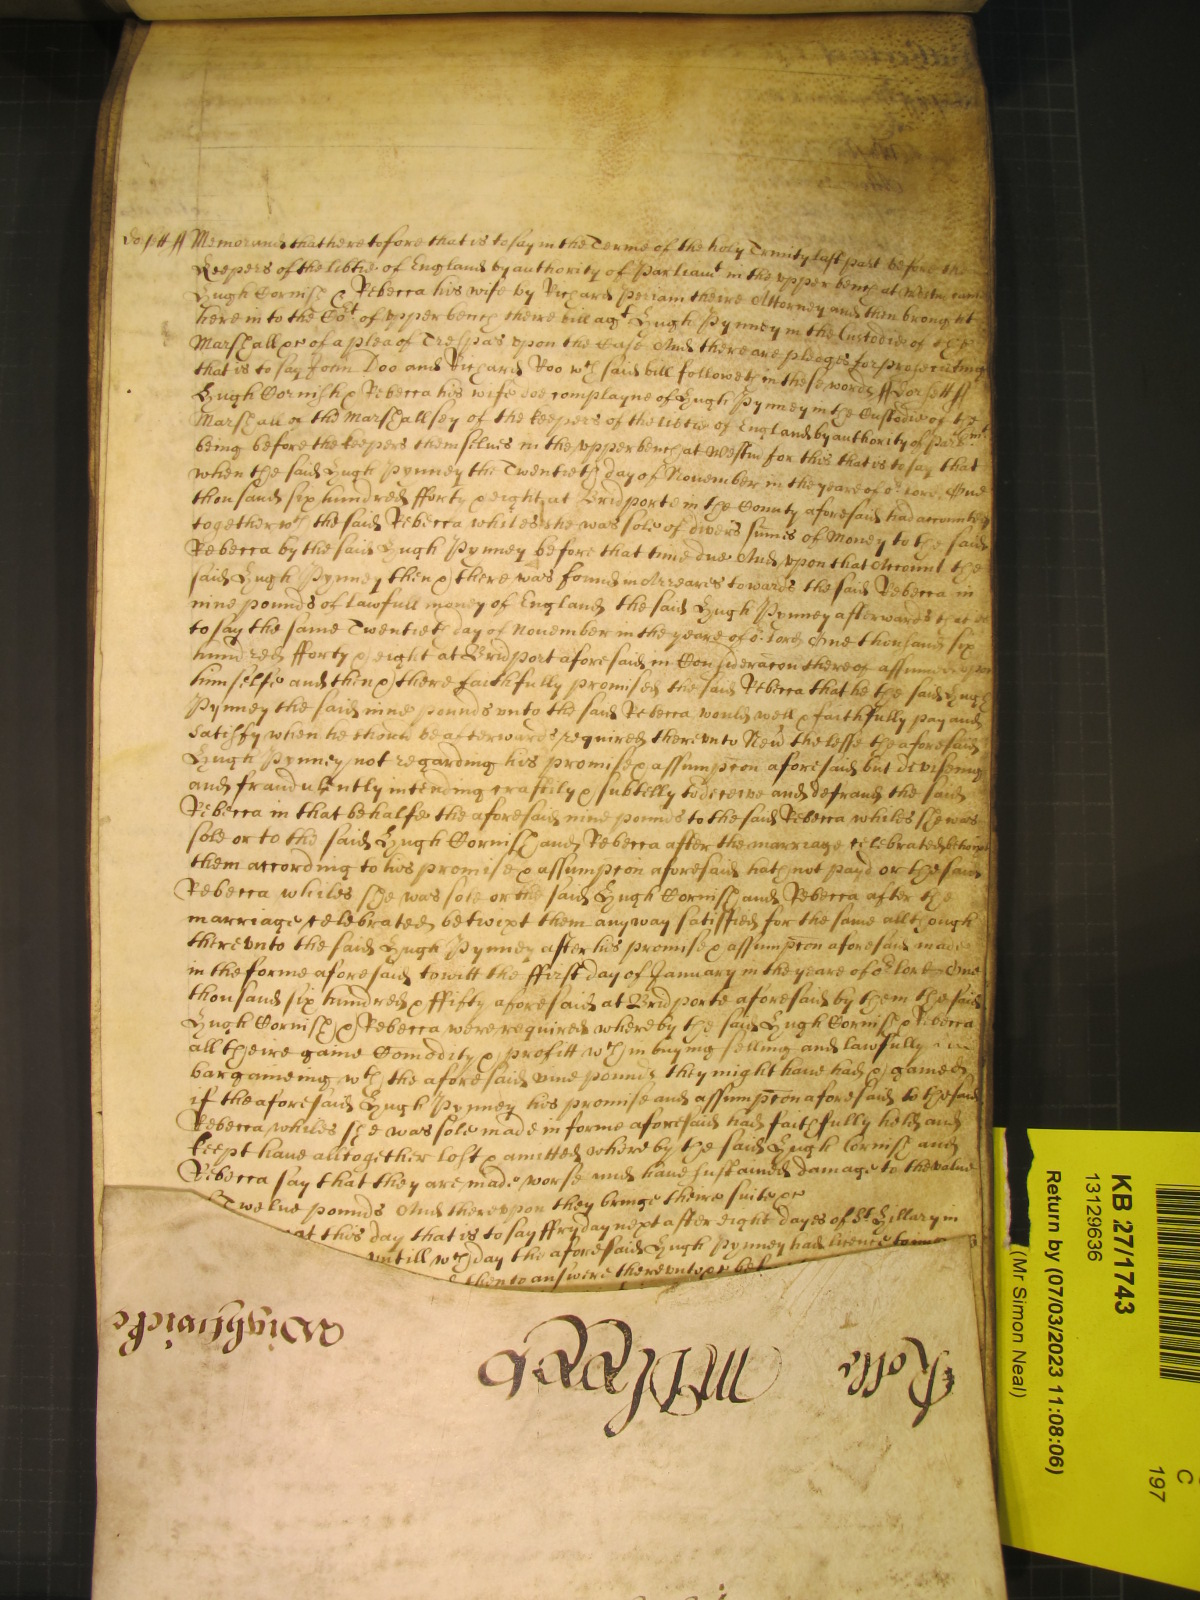 Dorsett ss Memorand that heretofore that is to say in the Terme of the holy Trinity last past before the
Keepers of the libtie of England by authority of Parliamt in the vpper bench at Westm came
Hugh Cornish & Rebecca his wife by Richard Periam theire Attorney and then brought
here in to the Cort of vpper bench theire bill agt Hugh Pynney in the Custodie of the
Marshall &c of a plea of Trespas vpon the Case And there are pledges for prosecuting
that is to say John Doo and Richard Roo wch said bill followeth in these words ss Dorsett ss
Hugh Cornish & Rebecca his wife doe complayne of Hugh Pynney in the Custodie of the
Marshall of the Marshallsey of the keepers of the libtie of England by authority of Parliamt
being before the keepers themselues in the vpper bench at Westm for this that is to say that
when the said Hugh Pynney the Twentieth day of November in the yeare of or lord One
thousand six hundred fforty & eight at Bridporte in the County aforesaid had accounted
together wth the said Rebecca whiles she was sole of divers summes of Money to the said
Rebecca by the said Hugh Pynney before that time due And vpon that Account the
said Hugh Pynney then & there was found in Arreares towards the said Rebecca in
nine pounds of lawfull money of England the said Hugh Pynney afterwards that is
to say the same Twentieth day of November in the yeare of or lord One thousand six
hundred fforty & eight at Bridport aforesaid in Consideracon thereof assumed vpon
himselfe and then & there faithfully promised the said Rebecca that he the said Hugh
Pynney the said nine pounds vnto the said Rebecca would well & faithfully pay and
satisfy when he should be afterwards required therevnto Neuerthelesse the aforesaid
Hugh Pynney not regarding his promise & assumpcon aforesaid but deviseing
and fraudulently intending craftily & subtilly to deceive and defraud the said
Rebecca in that behalfe the aforesaid nine pounds to the said Rebecca whiles she was
sole or to the said Hugh Cornish and Rebecca after the marriage celebrated betwixt
them according to his promise & assumpcon aforesaid hath not payd or the said
Rebecca whiles she was sole or the said Hugh Cornish and Rebecca after the
marriage celebrated betwixt them anyway satisfied for the same although
therevnto the said Hugh Pynney after his promise & assumpcon aforesaid made
in the forme aforesaid towitt the ffirst day of January in the yeare of or lord One
thousand six hundred & ffifty aforesaid at Bridporte aforesaid by them the said
Hugh Cornish & Rebecca were required whereby the said Hugh Cornish & Rebecca
all theire game Comodity & profitt wch in buying selling and lawfully
bargaineing wth the aforesaid nine pounds they might haue had & gamed
if the aforesaid Hugh Pynney his promise and assumpcon aforesaid to the said
Rebecca whiles she was sole made in forme aforesaid had faithfully held and
keept haue alltogether lost & amitted whereby the said Hugh Cornish and
Rebecca say that they are made worse and haue sustained damage to the value
Twelue pounds And therevpon they bringe theire suite &c
at this day that is to say ffryday next after eight dayes of St Hillary in
vntill wch day the aforesaid Hugh Pynney had licence to
then to answere therevnto &c
Wightwicke
Rolle
KB 27/1743
13129636
Return by (07/03/2023 11:08:06)
(Mr Simon Neal)
C
197